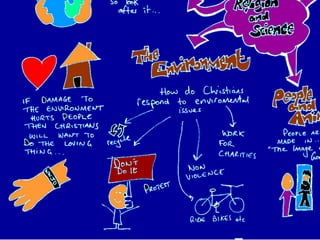 so look
after it...
Religion
and
Science
The
Environment
How do Christians
respond to environmental
issues
IF DAMAGE TO
THE ENVIRONMENT
HURTS PEOPLE
THEN CHRISTIANS
WILL WANT TO
DO THE LOVING
THING...
recycle
DON'T
DO IT
PROTEST
NON
VIOLENCE
WORK
FOR
CHARITIES
RIDE BIKES etc
People
and
PEOPLE AR
MADE IN
"The Image